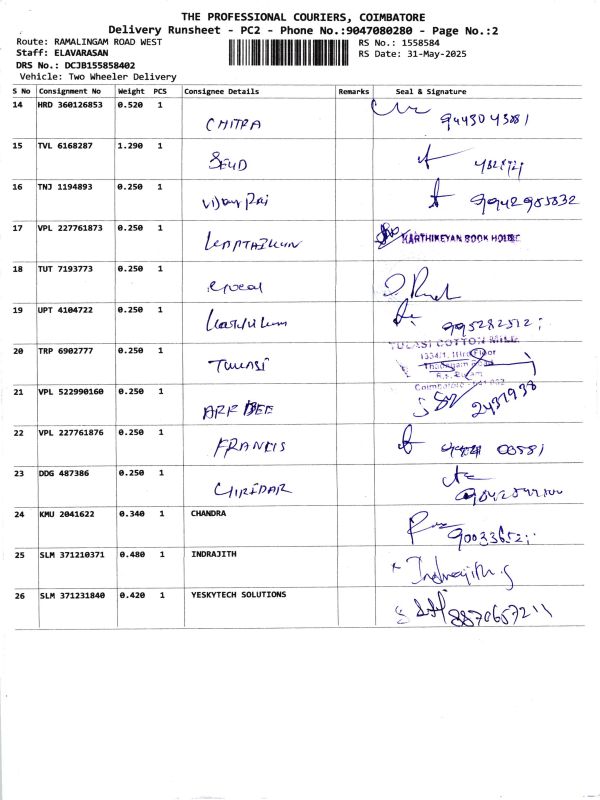 THE PROFESSIONAL COURIERS, COIMBATORE
Delivery Runsheet - PC2 - Phone No.:9047080280 - Page No.:2
Route: RAMALINGAM ROAD WEST RS No.: 1558584
Staff: ELAVARASAN RS Date: 31-May-2025
DRS No.: DCJB155858402
Vehicle: Two Wheeler Delivery
S No Consignment No Weight PCS Consignee Details Remarks Seal & Signature
14 HRD 360126853 0.520 1 CHITRA
15 TVL 6168287 1.290 1
16 TNJ 1194893 0.250 1 9942985832
17 VPL 227761873 0.250 1 KARTHIKEYAN BOOK HOUSE
18 TUT 7193773 0.250 1
19 UPT 4104722 0.250 1
20 TRP 6902777 0.250 1 TULASI TULASI COTTON MILL
1334/1, Third Floor
Thadagam Road
Coimbatore
21 VPL 522990160 0.250 1 ARF BEE 2437938
22 VPL 227761876 0.250 1 FRANCIS
23 DDG 487386 0.250 1 GIRIDAR
24 KMU 2041622 0.340 1 CHANDRA
25 SLM 371210371 0.480 1 INDRAJITH Indrajith.S
26 SLM 371231840 0.420 1 YESKYTECH SOLUTIONS 8870657211